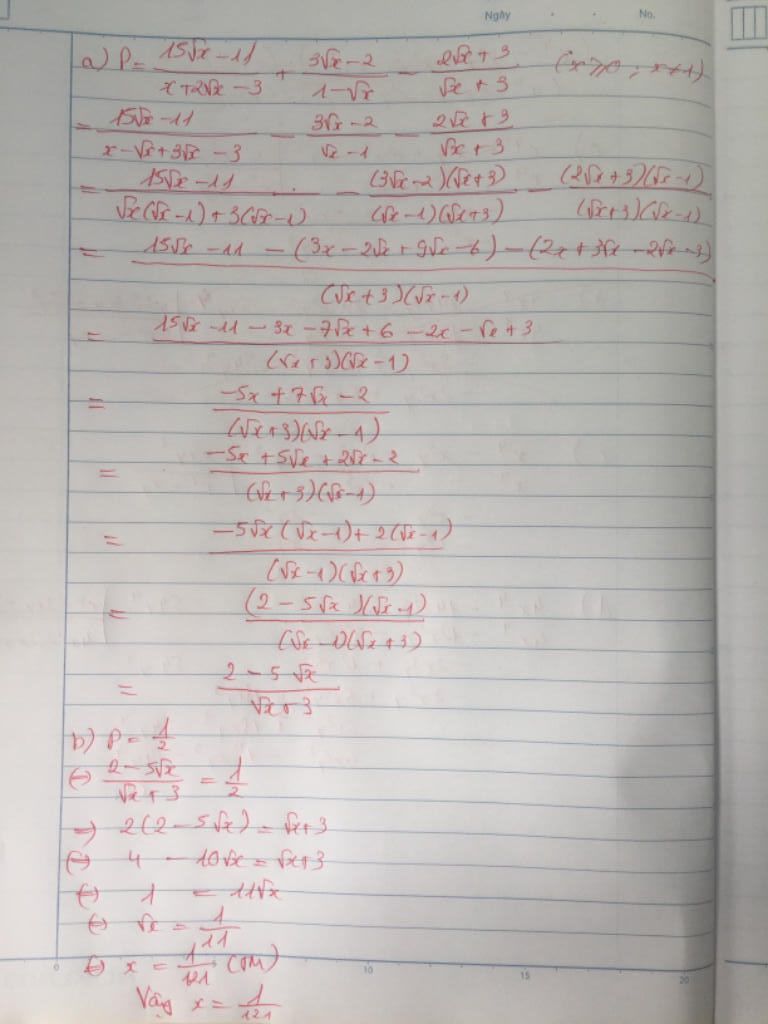 Ngày . . No.
a) P = (15√x - 11)/(x + 2√x - 3) + (3√x - 2)/(1 - √x) - (2√x + 3)/(√x + 3) (x ≥ 0 ; x ≠ 1)
= (15√x - 11)/(x - √x + 3√x - 3) - (3√x - 2)/(√x - 1) - (2√x + 3)/(√x + 3)
= (15√x - 11)/(√x(√x - 1) + 3(√x - 1)) - ((3√x - 2)(√x + 3))/((√x - 1)(√x + 3)) - ((2√x + 3)(√x - 1))/((√x + 3)(√x - 1))
= (15√x - 11 - (3x - 2√x + 9√x - 6) - (2x + 3√x - 2√x - 3))/((√x + 3)(√x - 1))
= (15√x - 11 - 3x - 7√x + 6 - 2x - √x + 3)/((√x + 3)(√x - 1))
= (-5x + 7√x - 2)/((√x + 3)(√x - 1))
= (-5x + 5√x + 2√x - 2)/((√x + 3)(√x - 1))
= (-5√x(√x - 1) + 2(√x - 1))/((√x - 1)(√x + 3))
= ((2 - 5√x)(√x - 1))/((√x - 1)(√x + 3))
= (2 - 5√x)/(√x + 3)
b) P = 1/2
⇔ (2 - 5√x)/(√x + 3) = 1/2
⇒ 2(2 - 5√x) = √x + 3
⇔ 4 - 10√x = √x + 3
⇔ 1 = 11√x
⇔ √x = 1/11
⇔ x = 1/121 (TM)
Vậy x = 1/121
0 10 15 20